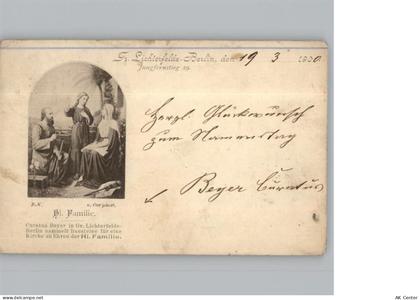 Gr. Lichterfelde-Berlin, den 19 3 1900
Jungfernstieg 19.
Herzl. Glückwunsch
zum Namenstag
Beyer Curatus
Hl. Familie.
Curatus Beyer in Gr. Lichterfelde-
Berlin sammelt Bausteine für eine
Kirche zu Ehren der Hl. Familie.
AK Center